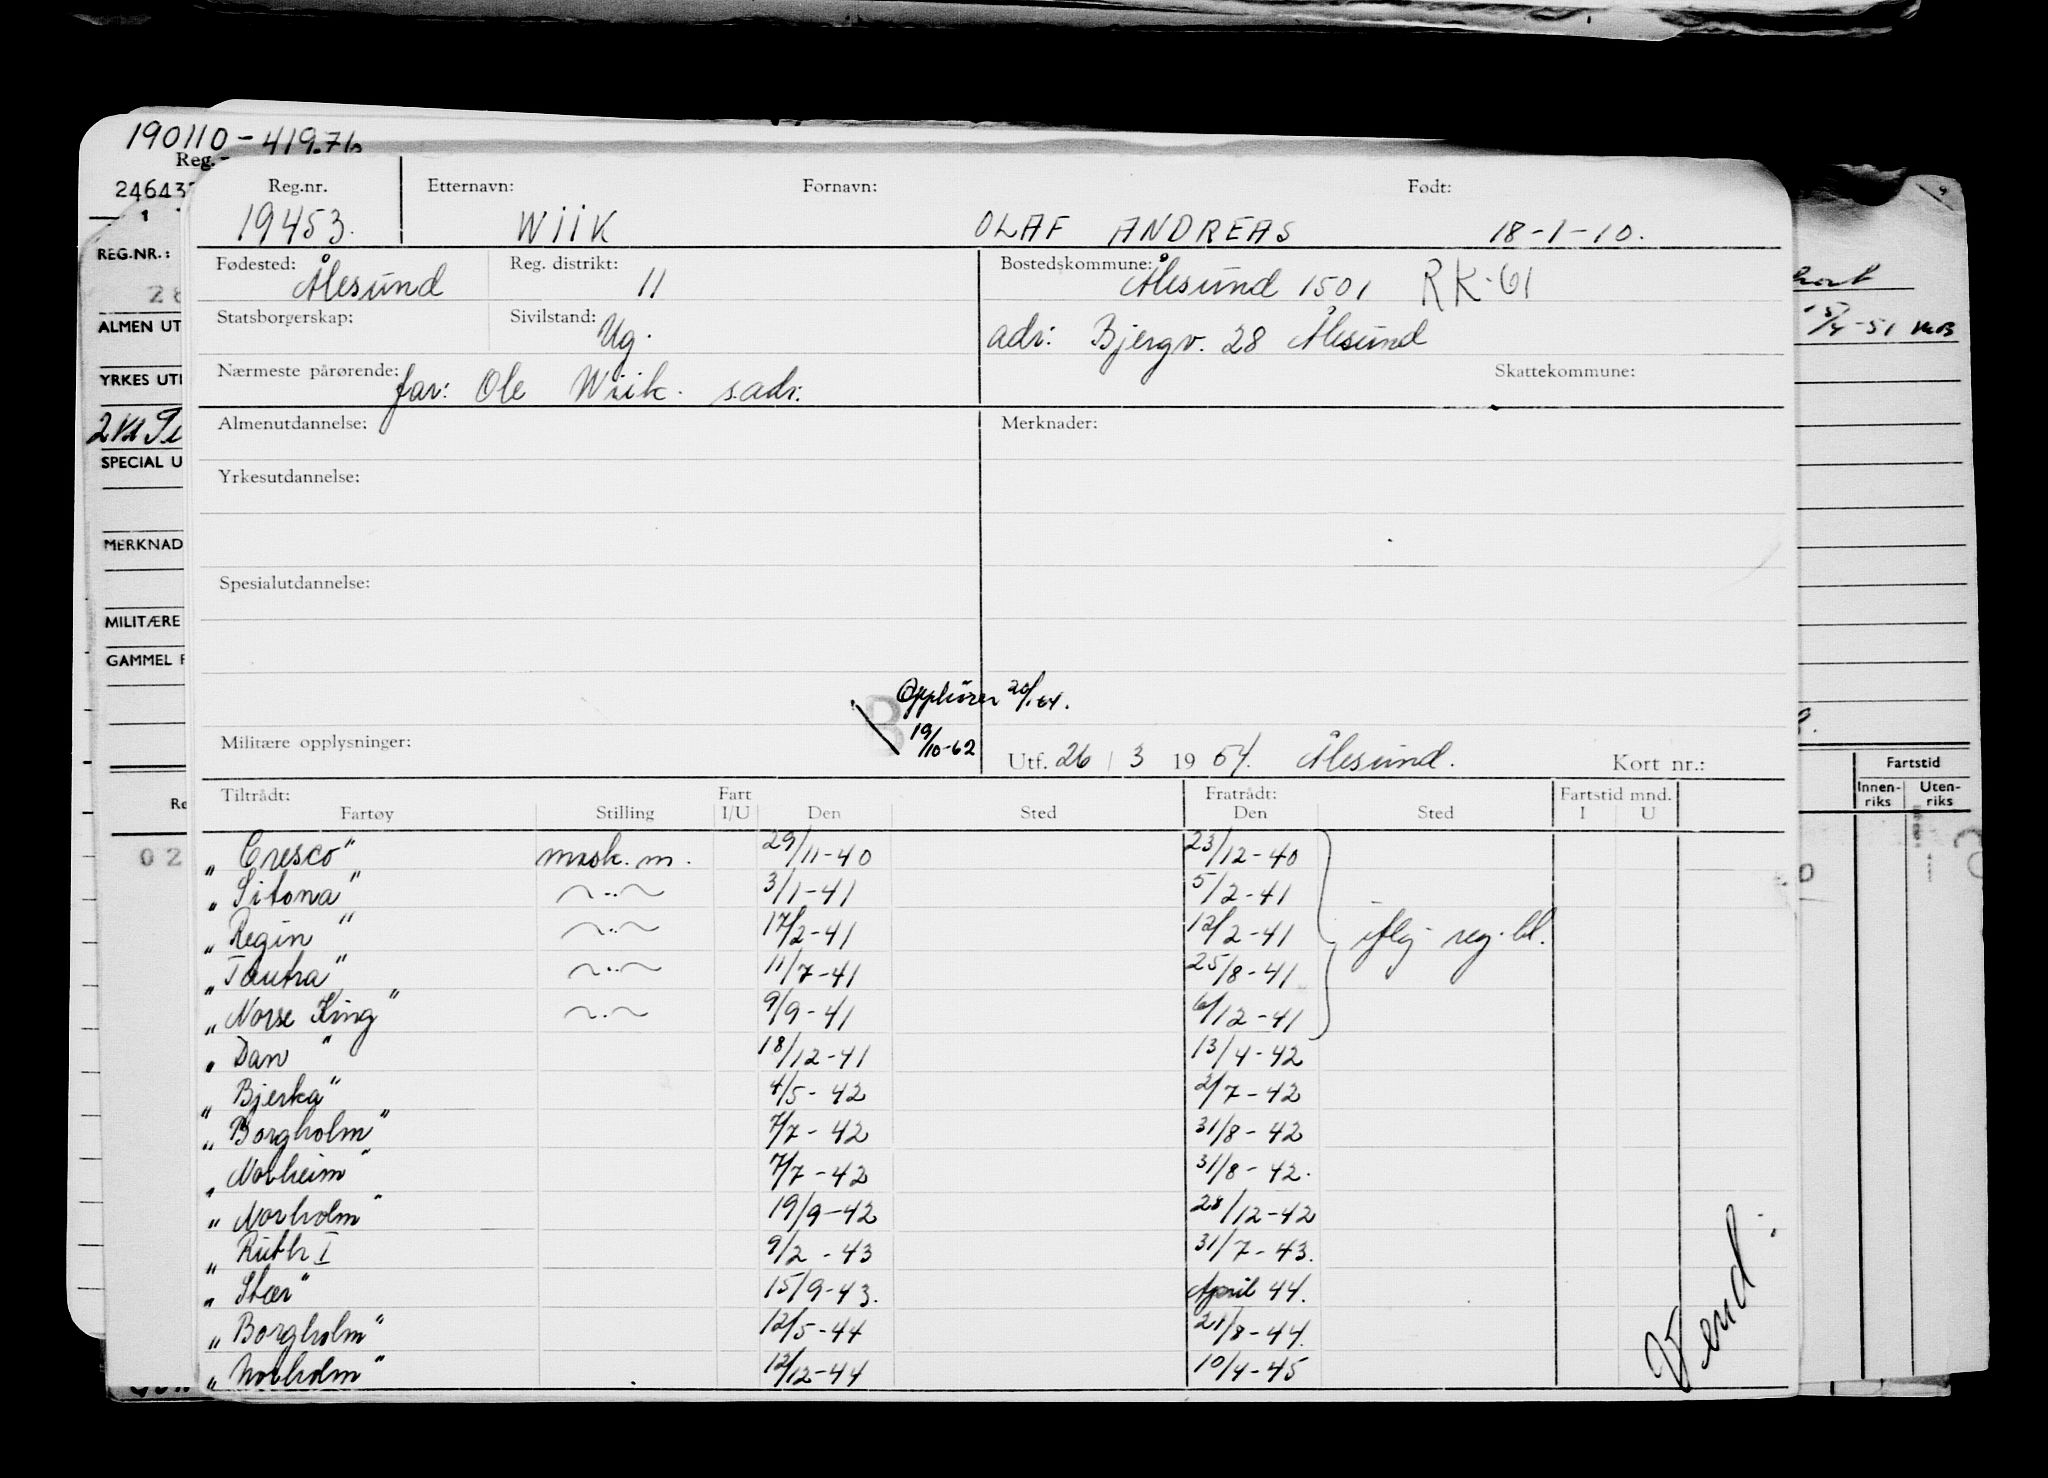 190110-41976
Reg.-
24643
Reg.nr. Etternavn: Fornavn: Født:
19453. WIIK OLAF ANDREAS 18-1-10.
Fødested: Reg. distrikt: Bostedskommune:
Ålesund 11 Ålesund 1501 RK-61
Statsborgerskap: Sivilstand:
Ug. adr: Bjergv. 28 Ålesund
Nærmeste pårørende: Skattekommune:
far: Ole Wiik. s.adr:
Almenutdannelse: Merknader:
Yrkesutdannelse:
Spesialutdannelse:
Opphører 20/1-64.
B 19/10-62
Militære opplysninger: Utf. 26 / 3 19 64. Ålesund. Kort nr.:
Tiltrådt: Fart Fratrådt: Fartstid mnd.
Fartøy Stilling I/U Den Sted Den Sted I U
"Cresco" mask. m. 29/11-40 23/12-40
"Sitona" ~..~ 3/1-41 5/2-41
"Regin" ~..~ 17/2-41 12/2-41 iflg. reg. bl.
"Tautra" ~..~ 11/7-41 25/8-41
"Norse King" ~..~ 9/9-41 6/12-41
"Dan" 18/12-41 13/4-42
"Bjerka" 4/5-42 2/7-42
"Borgholm" 7/7-42 31/8-42
"Norheim" 7/7-42 31/8-42.
"Norholm" 19/9-42 28/12-42
"Ruth I 9/2-43 31/7-43.
"Stær" 15/9-43. April 44.
"Borgholm" 12/5-44 21/8-44.
"Norholm" 12/12-44 10/4-45
Vend.
REG.NR.:
28
ALMEN UT
YRKES UT
2 kl
SPECIAL U
MERKNAD
MILITÆRE
GAMMEL
02
15/4-51
Fartstid
Innen-riks Uten-riks